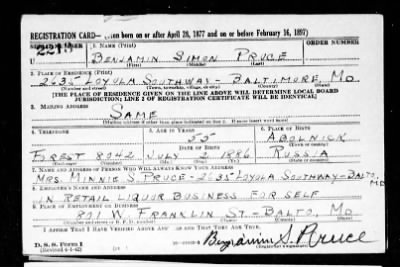 REGISTRATION CARD—(Men born on or after April 28, 1877 and on or before February 16, 1897)
SERIAL NUMBER 1. NAME (Print) ORDER NUMBER
BENJAMIN SIMON PRUCE
(First) (Middle) (Last)
2. PLACE OF RESIDENCE (Print)
2635 LOYOLA SOUTHWAY - BALTIMORE, MD.
(Number and street) (Town, township, village, or city) (County) (State)
[THE PLACE OF RESIDENCE GIVEN ON THE LINE ABOVE WILL DETERMINE LOCAL BOARD
JURISDICTION; LINE 2 OF REGISTRATION CERTIFICATE WILL BE IDENTICAL]
3. MAILING ADDRESS
SAME
[Mailing address if other than place indicated on line 2. If same insert word same]
4. TELEPHONE 5. AGE IN YEARS 6. PLACE OF BIRTH
55 ABOLNICK
DATE OF BIRTH (Town or county)
FOREST 8042 JULY 2 1886 RUSSIA
(Exchange) (Number) (Mo.) (Day) (Yr.) (State or country)
7. NAME AND ADDRESS OF PERSON WHO WILL ALWAYS KNOW YOUR ADDRESS
MRS. MINNIE S PRUCE - 2635 LOYOLA SOUTHWAY - BALTO, MD
8. EMPLOYER'S NAME AND ADDRESS
IN RETAIL LIQUOR BUSINESS FOR SELF
9. PLACE OF EMPLOYMENT OR BUSINESS
801 W. FRANKLIN ST. - BALTO, MD
(Number and street or R. F. D. number) (Town) (County) (State)
I AFFIRM THAT I HAVE VERIFIED ABOVE ANSWERS AND THAT THEY ARE TRUE.
D. S. S. Form 1
(Revised 4-1-42)
Benjamin S. Pruce